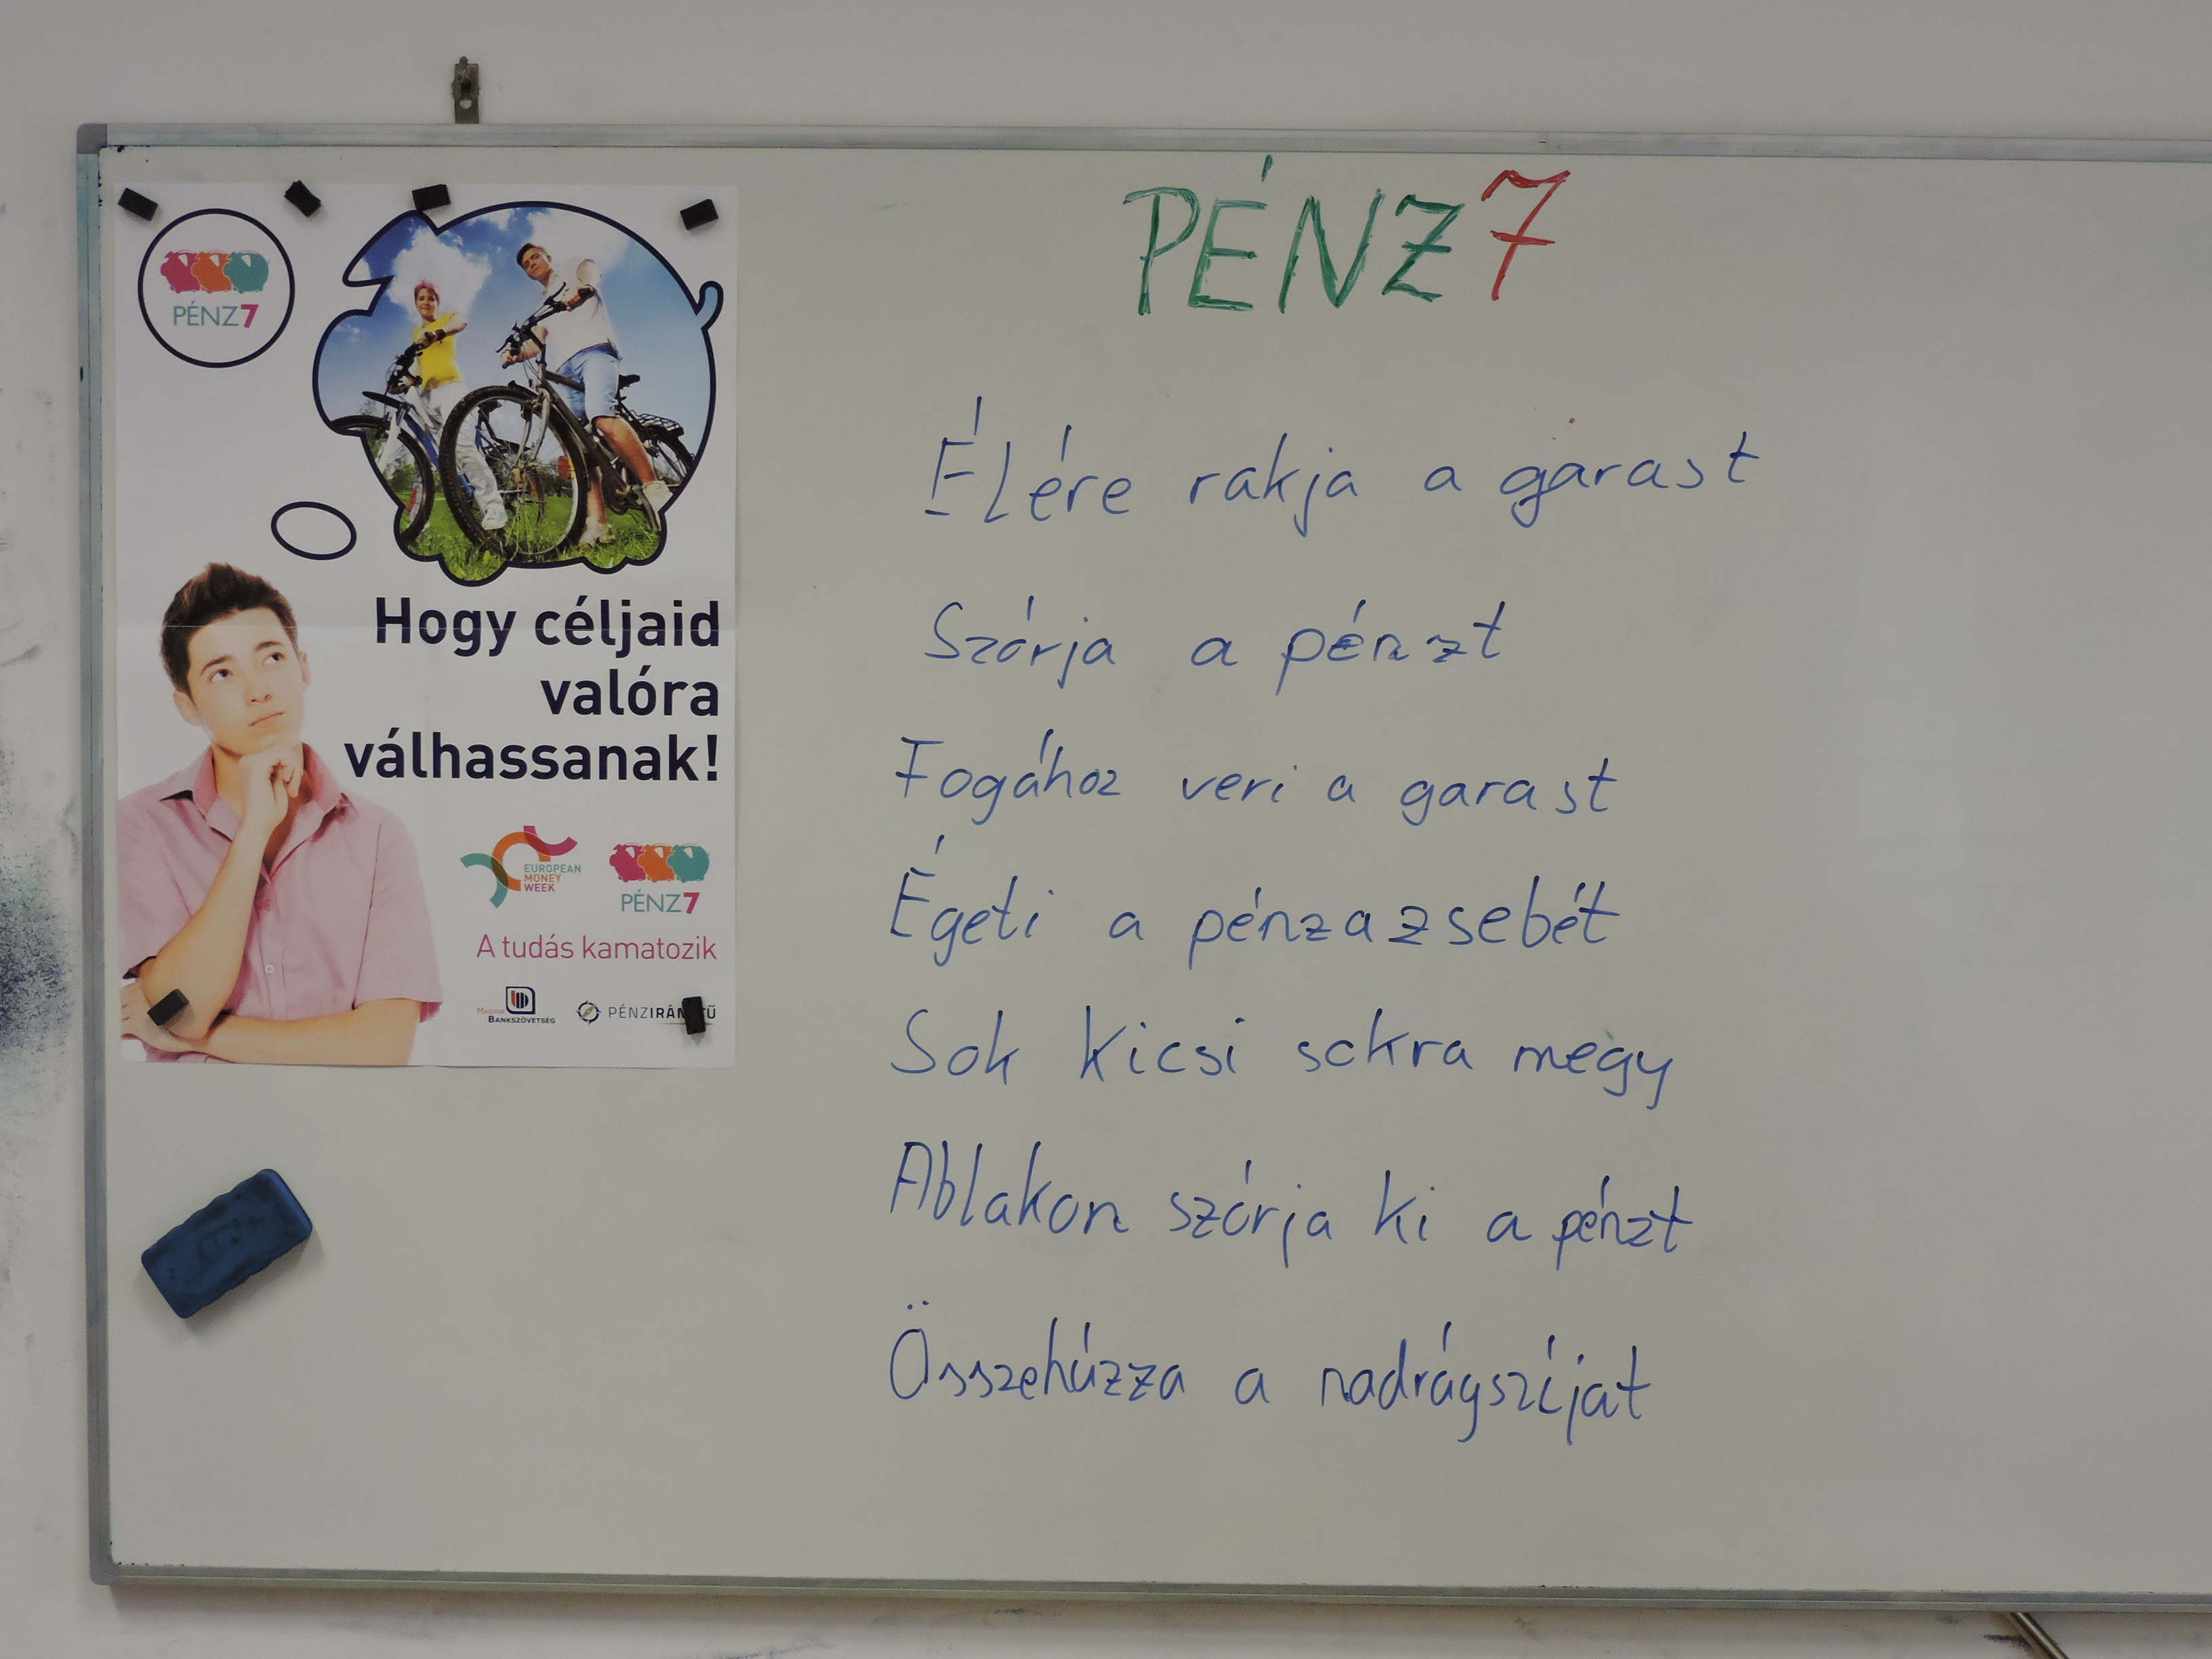 PÉNZ7
Hogy céljaid
valóra
válhassanak!
EUROPEAN
MONEY
WEEK
PÉNZ7
A tudás kamatozik
MAGYAR
BANKSZÖVETSÉG
PÉNZ7
Élére rakja a garast
Szórja a pénzt
Fogához veri a garast
Égeti a pénz a zsebét
Sok kicsi sokra megy
Ablakon szórja ki a pénzt
Összehúzza a nadrágszíját